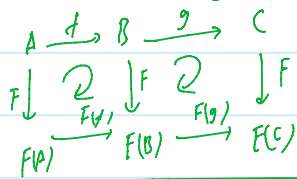 A f B g C
F F F
F(A) F(f) F(B) F(g) F(C)